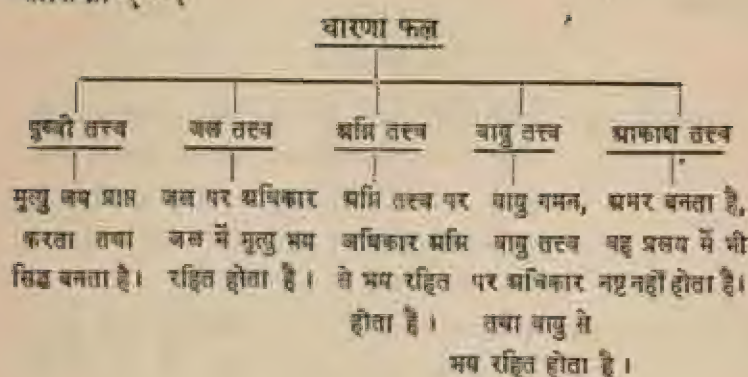 धारणा फल
पृथ्वी तत्त्व
मृत्यु जय प्राप्त
करता तथा
सिद्ध बनता है।
जल तत्त्व
जल पर अधिकार
जल में मृत्यु भय
रहित होता है।
अग्नि तत्त्व
अग्नि तत्त्व पर
अधिकार अग्नि
से भय रहित
होता है।
वायु तत्त्व
वायु गमन,
वायु तत्त्व
पर अधिकार
तथा वायु से
भय रहित होता है।
आकाश तत्त्व
अमर बनता है,
वह प्रलय में भी
नष्ट नहीं होता है।